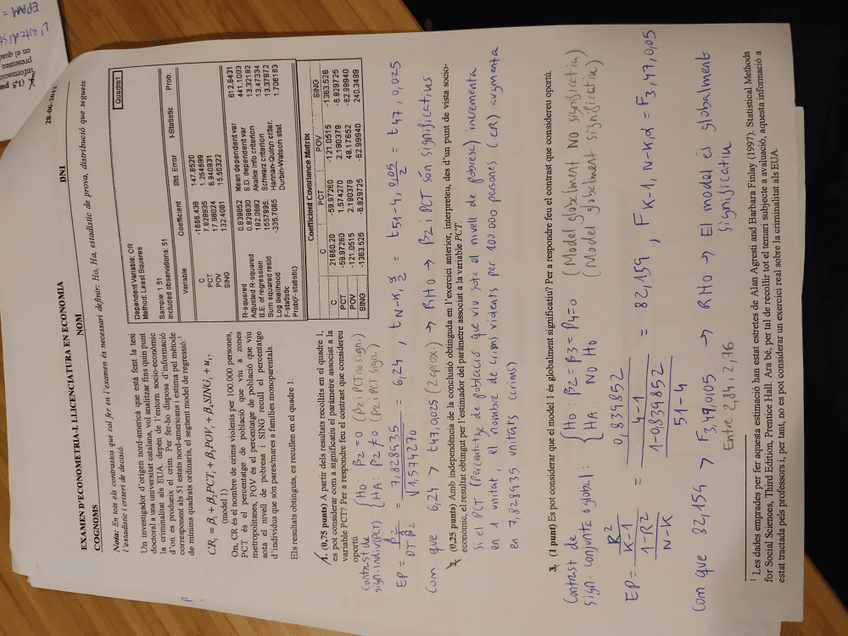 28-06-2012
EXAMEN D'ECONOMETRIA-I. LLICENCIATURA EN ECONOMIA
COGNOMS NOM DNI
Nota: En tots els contrastos que cal fer en l'examen és necessari definir: Ho, Ha, estadístic de prova, distribució que segueix
l'estadístic i criteri de decisió.
Un investigador d'origen nord-americà que està fent la tesi
doctoral a una universitat catalana, vol analitzar fins quin punt
la criminalitat als EUA, depèn de l'entorn socio-econòmic
d'on es produeix el crim. Per fer-ho disposa d'informació
corresponent als 51 estats nord-americans i estima pel mètode
de mínims quadrats ordinaris, el següent model de regressió¹:
CRᵢ = β₁ + β₂PCTᵢ + β₃POVᵢ + β₄SINGᵢ + uᵢ.
(model 1)
On, CR és el nombre de crims violents per 100.000 persones,
PCT és el percentatge de població que viu a zones
metropolitanes, POV és el percentatge de població que viu
sota el nivell de pobresa i SING recull el percentatge
d'individus que són pares/mares a famílies monoparentals.
Els resultats obtinguts, es recullen en el quadre 1:
Quadre1
Dependent Variable: CR
Method: Least Squares
Sample: 1 51
Included observations: 51
Variable Coefficient Std. Error t-Statistic Prob.
C -1666.436 147.8520
PCT 7.828935 1.254699
POV 17.68024 6.940931
SING 132.4081 15.50322
R-squared 0.839852 Mean dependent var 612.8431
Adjusted R-squared 0.829630 S.D. dependent var 441.1003
S.E. of regression 182.0682 Akaike info criterion 13.32182
Sum squared resid 1557895. Schwarz criterion 13.47334
Log likelihood -335.7065 Hannan-Quinn criter. 13.37972
F-statistic Durbin-Watson stat 1.706183
Prob(F-statistic)
Coefficient Covariance Matrix
C PCT POV SING
C 21860.20 -59.97260 -121.0515 -1363.526
PCT -59.97260 1.574270 2.190379 -6.829725
POV -121.0515 2.190379 48.17652 -62.99940
SING -1363.526 -6.829725 -62.99940 240.3499
1. (0,75 punts) A partir dels resultats recollits en el quadre 1,
es pot considerar com a significatiu el paràmetre associat a la
variable PCT? Per a respondre feu el contrast que considereu
oportú.
Contrast de
sign. individual (PCT) { Ho: β2 = 0 (β2; PCT no sign.)
HA: β2 ≠ 0 (β2; PCT sign.)
EP = β̂2 / √DT β̂2 = 7,828935 / √1,574270 = 6,24, t N-K, α/2 = t 51-4, 0,05/2 = t 47, 0,025
Com que 6,24 > t47,0,025 (2 aprox) → RHo → β2; PCT són significatius
2. (0,25 punts) Amb independència de la conclusió obtinguda en l'exercici anterior, interpreteu, des d'un punt de vista socio-
econòmic, el resultat obtingut per l'estimador del paràmetre associat a la variable PCT.
Si el PCT (Percentatge de població que viu sota el nivell de pobresa) incrementa
en 1 unitat, el nombre de crims violents per 100.000 persones (CR) augmenta
en 7,828935 unitats (crims)
3. (1 punt) Es pot considerar que el model 1 és globalment significatiu? Per a respondre feu el contrast que considereu oportú.
Contrast de
sign. conjunta o global: { Ho: β2 = β3 = β4 = 0 (Model globalment NO significatiu)
HA NO Ho (Model globalment significatiu)
EP = R²/K-1 / 1-R²/N-K = 0,839852/4-1 / 1-0,839852/51-4 = 82,159, F K-1, N-K, α = F 3, 47, 0,05
Com que 82,159 > F3,47,0,05 → RHo → El model és globalment
significatiu
Entre 2,84 i 2,76
¹ Les dades emprades per fer aquesta estimació han estat estretes de Alan Agresti and Barbara Finlay (1997). Statistical Methods
for Social Sciences, Third Edition, Prentice Hall. Ara bé, per tal de recollir tot el temari subjecte a avaluació, aquesta informació a
estat tractada pels professors i, per tant, no es pot considerar un exercici real sobre la criminalitat als EUA.